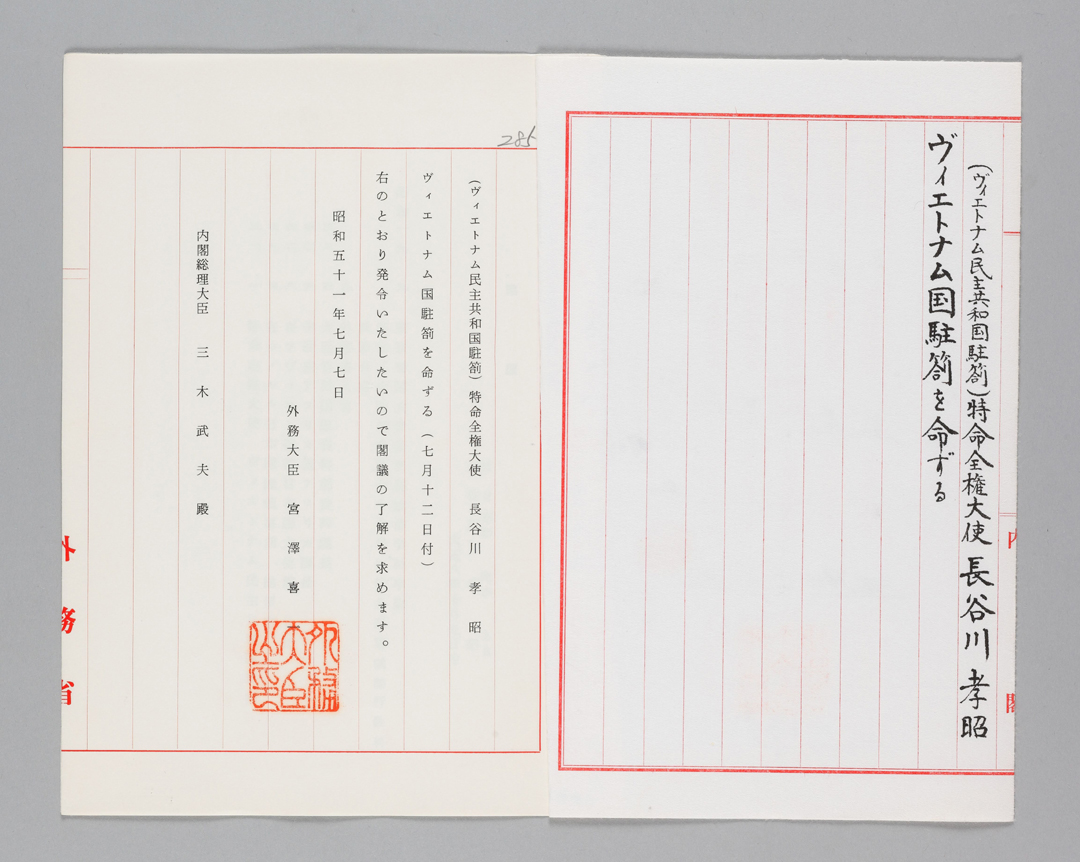 (ヴィエトナム民主共和国駐箚)特命全権大使 長谷川孝昭
ヴィエトナム国駐箚を命ずる
内閣
285
(ヴィエトナム民主共和国駐箚)特命全権大使 長谷川孝昭
ヴィエトナム国駐箚を命ずる(七月十二日付)
右のとおり発令いたしたいので閣議の了解を求めます。
昭和五十一年七月七日
外務大臣 宮澤喜
外務大臣之印
内閣総理大臣 三木武夫殿
外務省